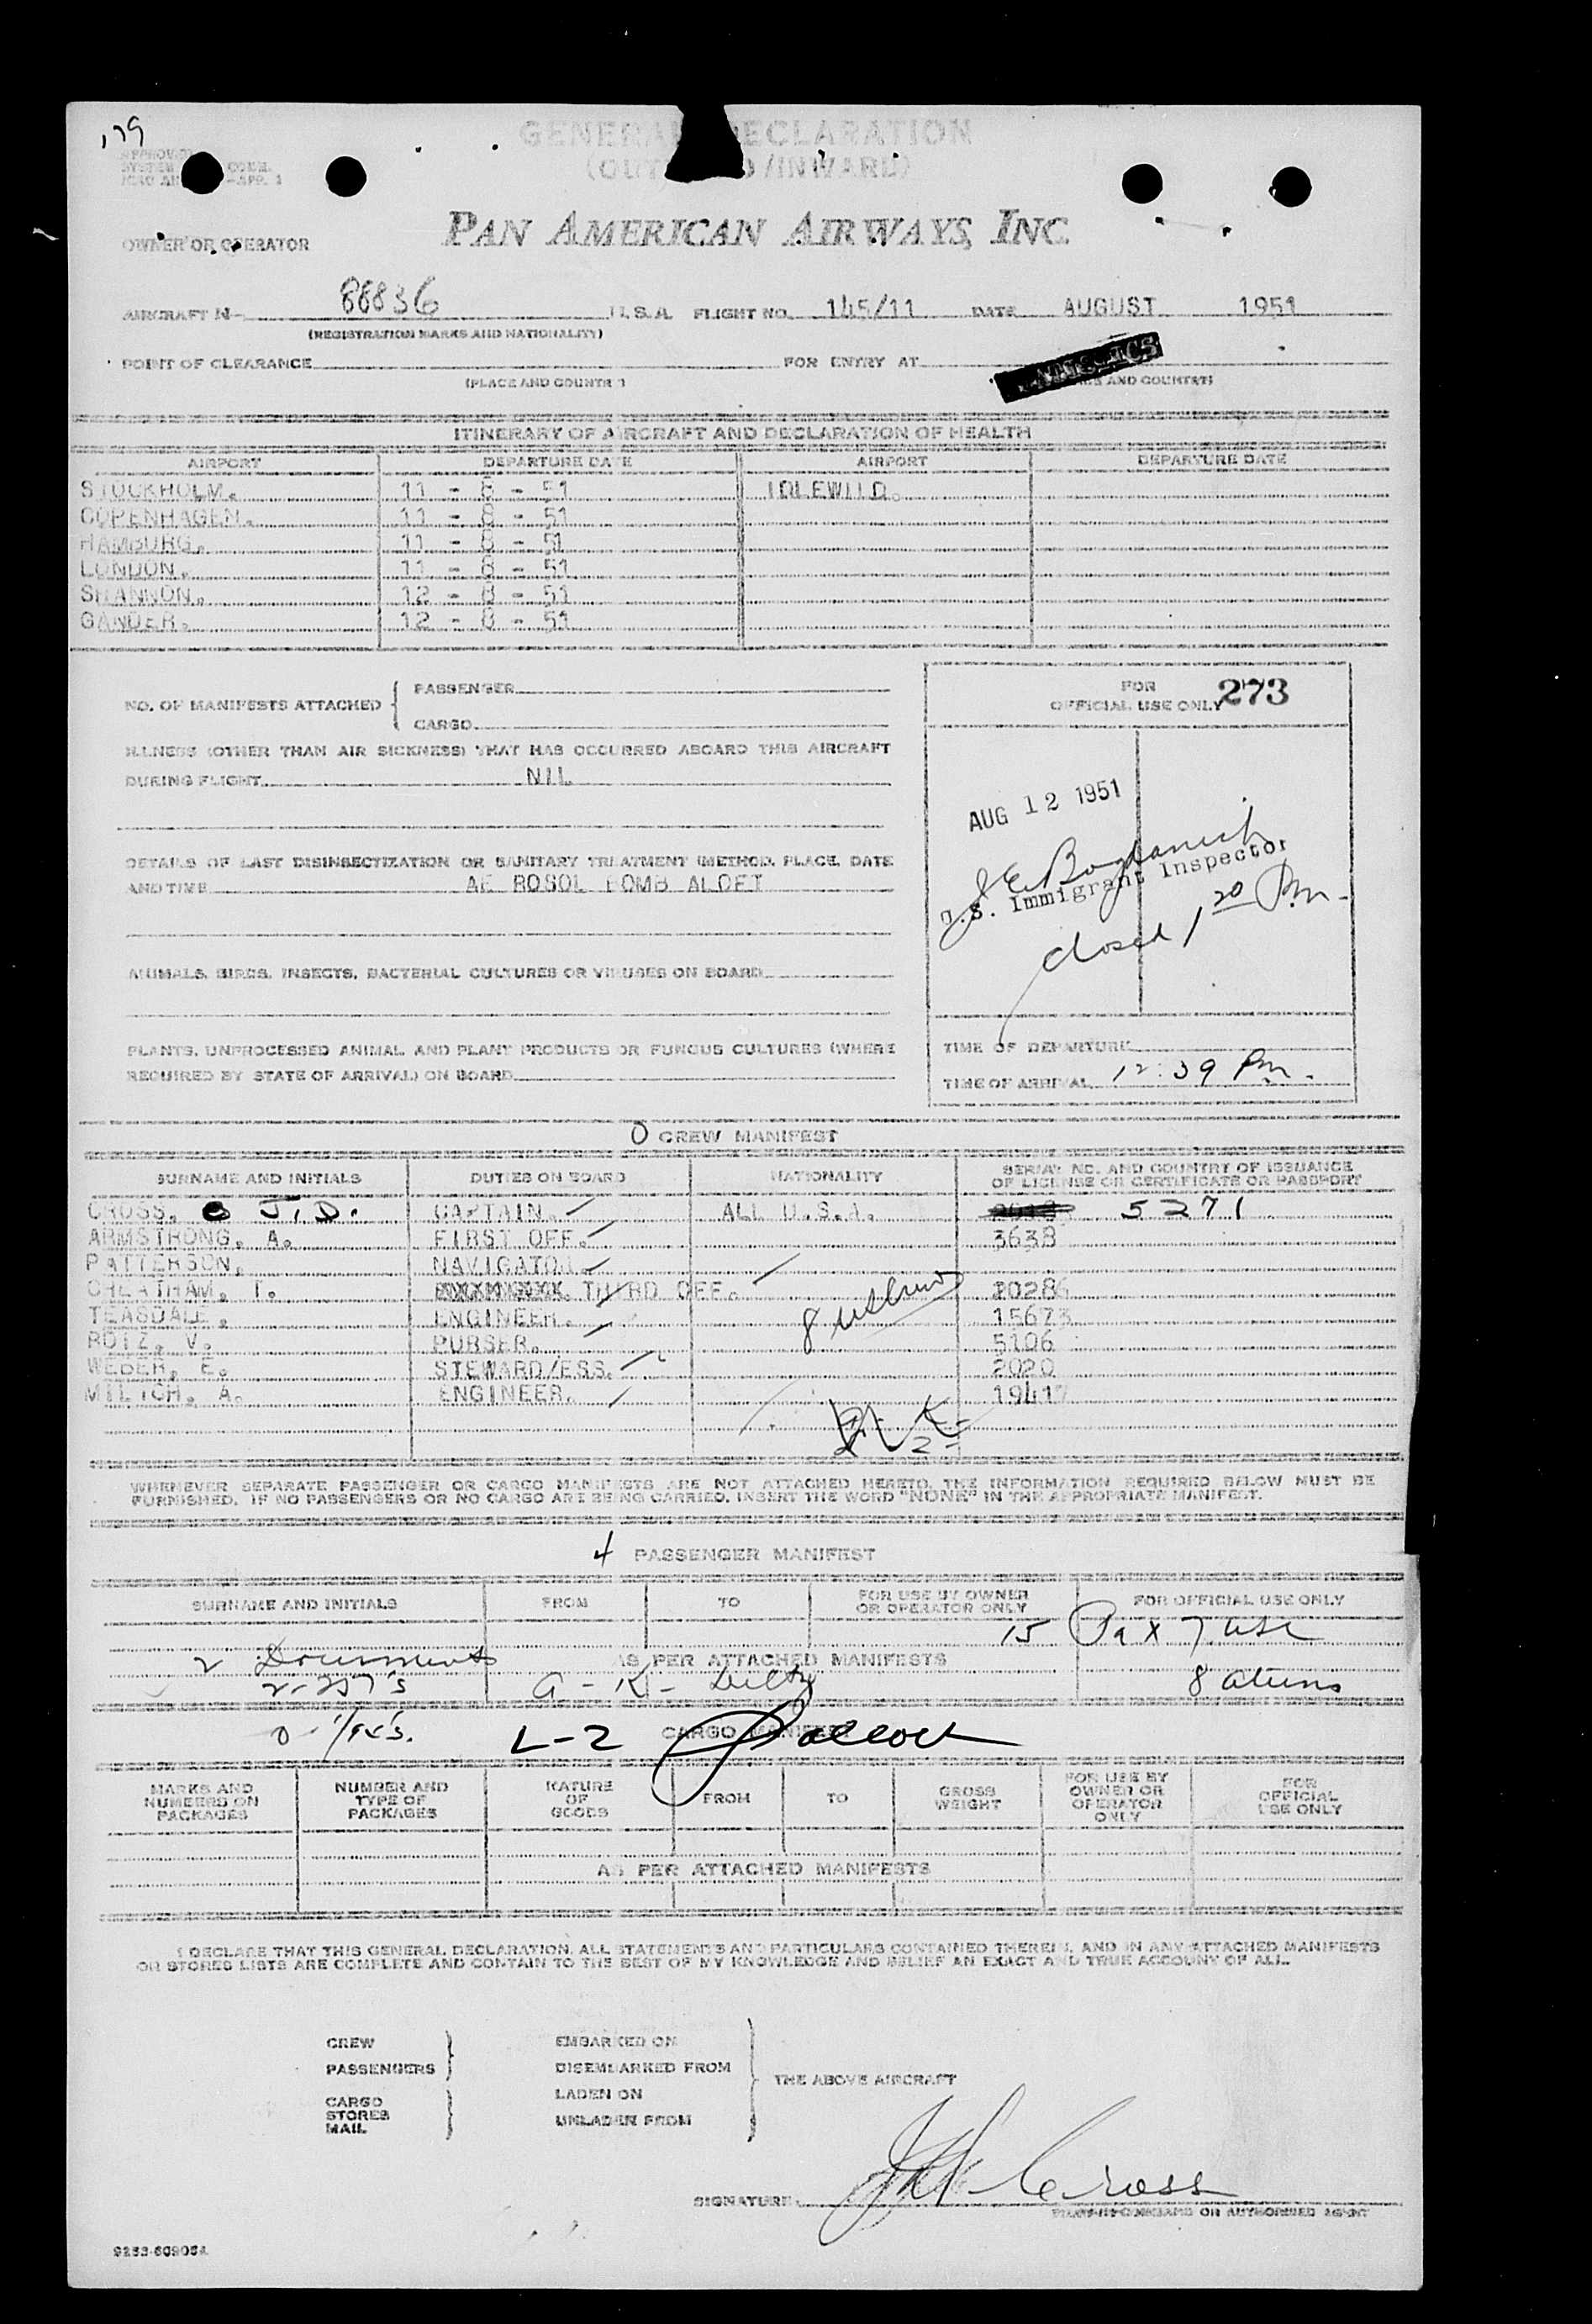 179
GENERAL DECLARATION
(OUTWARD/INWARD)
OWNER OR OPERATOR PAN AMERICAN AIRWAYS, INC.
AIRCRAFT N- 88836 U.S.A. FLIGHT NO. 145/11 DATE AUGUST 1951
(REGISTRATION MARKS AND NATIONALITY)
POINT OF CLEARANCE FOR ENTRY AT
(PLACE AND COUNTRY) AND COUNTRY)
ITINERARY OF AIRCRAFT AND DECLARATION OF HEALTH
AIRPORT DEPARTURE DATE AIRPORT DEPARTURE DATE
STOCKHOLM. 11 - 8 - 51 IDLEWILD.
COPENHAGEN. 11 - 8 - 51
HAMBURG. 11 - 8 - 51
LONDON. 11 - 8 - 51
SHANNON. 12 - 8 - 51
GANDER. 12 - 8 - 51
NO. OF MANIFESTS ATTACHED { PASSENGER
CARGO
FOR OFFICIAL USE ONLY 273
ILLNESS (OTHER THAN AIR SICKNESS) THAT HAS OCCURRED ABOARD THIS AIRCRAFT
DURING FLIGHT NIL
AUG 12 1951
DETAILS OF LAST DISINSECTIZATION OR SANITARY TREATMENT (METHOD, PLACE, DATE
AND TIME AE ROSOL BOMB ALOFT
U.S. Immigrant Inspector
closed 1 20 Pm.
ANIMALS, BIRDS, INSECTS, BACTERIAL CULTURES OR VIRUSES ON BOARD
PLANTS, UNPROCESSED ANIMAL AND PLANT PRODUCTS OR FUNGUS CULTURES (WHERE
REQUIRED BY STATE OF ARRIVAL) ON BOARD
TIME OF DEPARTURE
TIME OF ARRIVAL 12:39 Pm.
0 CREW MANIFEST
SURNAME AND INITIALS DUTIES ON BOARD NATIONALITY SERIAL NO. AND COUNTRY OF ISSUANCE
OF LICENSE OR CERTIFICATE OR PASSPORT
CROSS. J.D. CAPTAIN. ALL U.S.A. 5271
ARMSTRONG. A. FIRST OFF. 3638
PATTERSON. NAVIGATOR.
CHEATHAM. T. THIRD OFF. 20286
TEASDALE. ENGINEER. 15673
ROTZ. V. PURSER. 5106
WEBER. E. STEWARD/ESS. 2020
MILICH. A. ENGINEER. 19417
WHENEVER SEPARATE PASSENGER OR CARGO MANIFESTS ARE NOT ATTACHED HERETO, THE INFORMATION REQUIRED BELOW MUST BE
FURNISHED. IF NO PASSENGERS OR NO CARGO ARE BEING CARRIED, INSERT THE WORD "NONE" IN THE APPROPRIATE MANIFEST.
4 PASSENGER MANIFEST
SURNAME AND INITIALS FROM TO FOR USE BY OWNER OR OPERATOR ONLY FOR OFFICIAL USE ONLY
15 Pax 7 USC
2 Documents AS PER ATTACHED MANIFESTS
2-257's 8 aliens
L-2 CARGO MANIFEST
MARKS AND NUMBERS ON PACKAGES NUMBER AND TYPE OF PACKAGES NATURE OF GOODS FROM TO GROSS WEIGHT FOR USE BY OWNER OR OPERATOR ONLY FOR OFFICIAL USE ONLY
AS PER ATTACHED MANIFESTS
I DECLARE THAT THIS GENERAL DECLARATION, ALL STATEMENTS AND PARTICULARS CONTAINED THEREIN, AND IN ANY ATTACHED MANIFESTS
OR STORES LISTS ARE COMPLETE AND CONTAIN TO THE BEST OF MY KNOWLEDGE AND BELIEF AN EXACT AND TRUE ACCOUNT OF ALL
CREW
PASSENGERS }
CARGO
STORES
MAIL }
EMBARKED ON
DISEMBARKED FROM
LADEN ON
UNLADEN FROM
} THE ABOVE AIRCRAFT
SIGNATURE Cross
PILOT-IN-COMMAND OR AUTHORISED AGENT